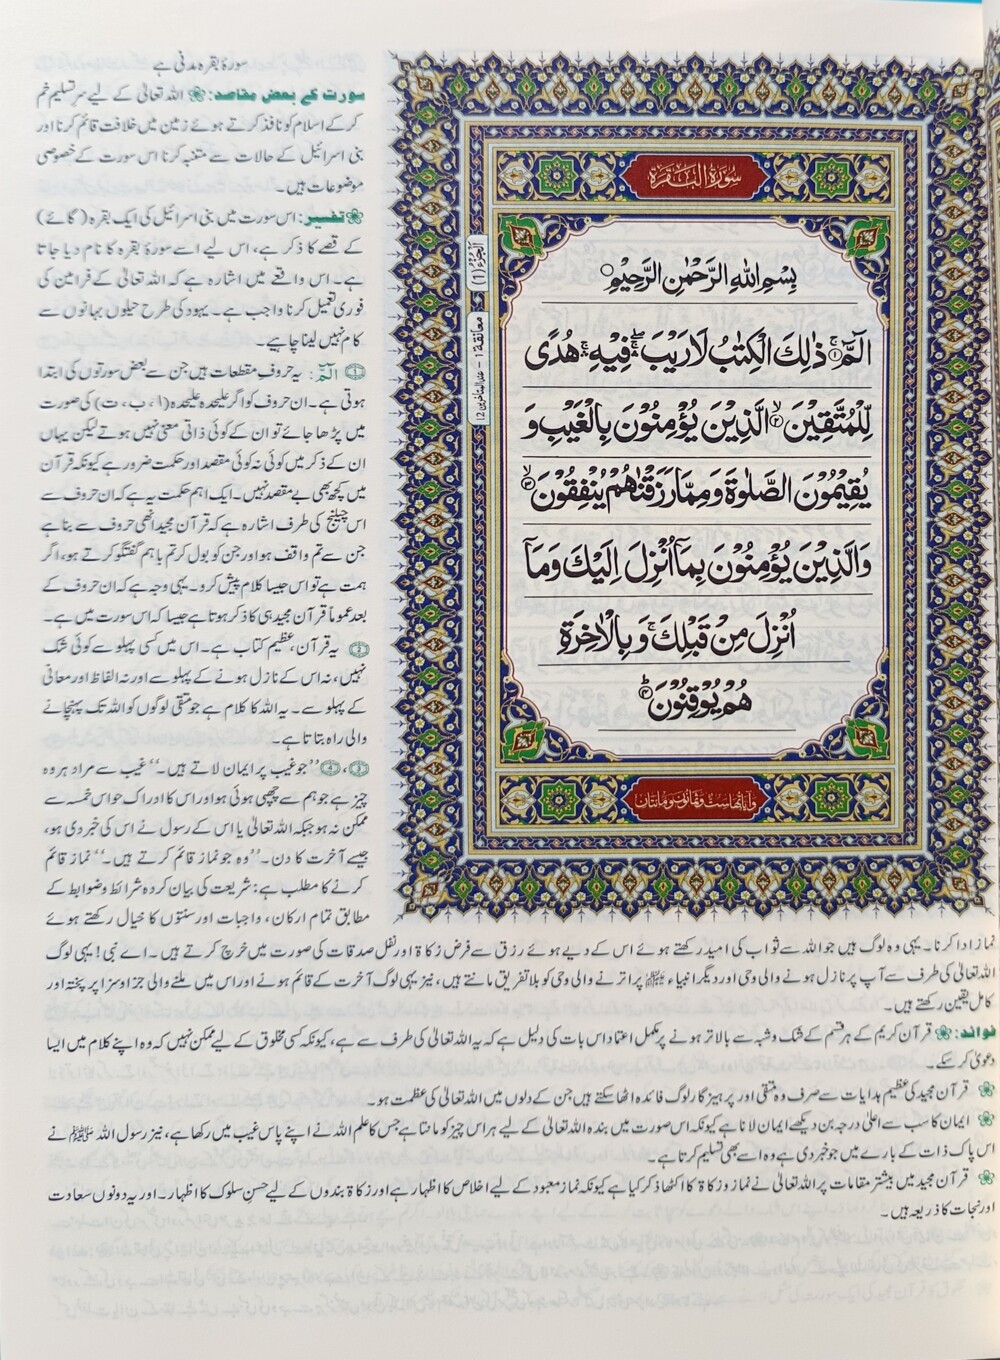 سورۂ بقرہ مدنی ہے
سورت کے بعض مقاصد: اللہ تعالیٰ کے لیے سر تسلیم خم
کر کے اسلام کو نافذ کرتے ہوئے زمین میں خلافت قائم کرنا اور
بنی اسرائیل کے حالات سے متنبہ کرنا اس سورت کے خصوصی
موضوعات ہیں۔
تفسیر: اس سورت میں بنی اسرائیل کی ایک بقرہ (گائے)
کے قصے کا ذکر ہے، اس لیے اسے سورۂ بقرہ کا نام دیا جاتا
ہے۔ اس واقعے میں اشارہ ہے کہ اللہ تعالیٰ کے فرامین کی
فوری تعمیل کرنا واجب ہے۔ یہود کی طرح حیلوں بہانوں سے
کام نہیں لینا چاہیے۔
1 الٓمّٓ: یہ حروفِ مقطعات ہیں جن سے بعض سورتوں کی ابتدا
ہوتی ہے۔ ان حروف کو اگر علیحدہ علیحدہ (ا، ب، ت) کی صورت
میں پڑھا جائے تو ان کے کوئی ذاتی معنی نہیں ہوتے لیکن یہاں
ان کے ذکر میں کوئی نہ کوئی مقصد اور حکمت ضرور ہے کیونکہ قرآن
میں کچھ بھی بے مقصد نہیں۔ ایک اہم حکمت یہ ہے کہ ان حروف سے
اس چیلنج کی طرف اشارہ ہے کہ قرآن مجید انھی حروف سے بنا ہے
جن سے تم واقف ہو اور جن کو بول کر تم باہم گفتگو کرتے ہو، اگر
ہمت ہے تو اس جیسا کلام پیش کرو۔ یہی وجہ ہے کہ ان حروف کے
بعد عموماً قرآن مجید ہی کا ذکر ہوتا ہے جیسا کہ اس سورت میں ہے۔
2 یہ قرآن، عظیم کتاب ہے۔ اس میں کسی پہلو سے کوئی شک
نہیں، نہ اس کے نازل ہونے کے پہلو سے اور نہ الفاظ اور معانی
کے پہلو سے۔ یہ اللہ کا کلام ہے جو متقی لوگوں کو اللہ تک پہنچانے
والی راہ بتاتا ہے۔
3، 4 ’’جو غیب پر ایمان لاتے ہیں۔‘‘ غیب سے مراد ہر وہ
چیز ہے جو ہم سے چھپی ہوئی ہو اور اس کا ادراک حواس خمسہ سے
ممکن نہ ہو جبکہ اللہ تعالیٰ یا اس کے رسول نے اس کی خبر دی ہو،
جیسے آخرت کا دن۔ ’’وہ جو نماز قائم کرتے ہیں۔‘‘ نماز قائم
کرنے کا مطلب ہے: شریعت کی بیان کردہ شرائط و ضوابط کے
مطابق تمام ارکان، واجبات اور سنتوں کا خیال رکھتے ہوئے
نماز ادا کرنا۔ یہی وہ لوگ ہیں جو اللہ سے ثواب کی امید رکھتے ہوئے اس کے دیے ہوئے رزق سے فرض زکاۃ اور نفل صدقات کی صورت میں خرچ کرتے ہیں۔ اے نبی! یہی لوگ
اللہ تعالیٰ کی طرف سے آپ پر نازل ہونے والی وحی اور دیگر انبیاء پر اترنے والی وحی کو بلا تفریق مانتے ہیں، نیز یہی لوگ آخرت کے قائم ہونے اور اس میں ملنے والی جزا و سزا پر پختہ اور
کامل یقین رکھتے ہیں۔
فوائد: قرآن کریم کے ہر قسم کے شک و شبہ سے بالاتر ہونے پر مکمل اعتماد اس بات کی دلیل ہے کہ یہ اللہ تعالیٰ کی طرف سے ہے، کیونکہ کسی مخلوق کے لیے ممکن نہیں کہ وہ اپنے کلام میں ایسا
دعویٰ کر سکے۔
قرآن مجید کی عظیم ہدایات سے صرف وہ متقی اور پرہیز گار لوگ فائدہ اٹھا سکتے ہیں جن کے دلوں میں اللہ تعالیٰ کی عظمت ہو۔
ایمان کا سب سے اعلیٰ درجہ بن دیکھے ایمان لانا ہے کیونکہ اس صورت میں بندہ اللہ تعالیٰ کے لیے ہر اس چیز کو مانتا ہے جس کا علم اللہ نے اپنے پاس غیب میں رکھا ہے، نیز رسول اللہ ﷺ نے
اس پاک ذات کے بارے میں جو خبر دی ہے وہ اسے بھی تسلیم کرتا ہے۔
قرآن مجید میں بیشتر مقامات پر اللہ تعالیٰ نے نماز و زکاۃ کا اکٹھا ذکر کیا ہے کیونکہ نماز معبود کے لیے اخلاص کا اظہار ہے اور زکاۃ بندوں کے لیے حسن سلوک کا اظہار۔ اور یہ دونوں سعادت
اور نجات کا ذریعہ ہیں۔
سُوۡرَةُ الۡبَقَرَةِ
بِسۡمِ اللّٰهِ الرَّحۡمٰنِ الرَّحِيۡمِ
الٓمّٓ ۚ‏ ﴿۱﴾ ذٰلِكَ الۡكِتٰبُ لَا رَيۡبَ ۛۚ فِيۡهِ ۛۚ هُدًى
لِّلۡمُتَّقِيۡنَۙ‏ ﴿۲﴾ الَّذِيۡنَ يُؤۡمِنُوۡنَ بِالۡغَيۡبِ وَ
يُقِيۡمُوۡنَ الصَّلٰوةَ وَمِمَّا رَزَقۡنٰهُمۡ يُنۡفِقُوۡنَۙ‏ ﴿۳﴾
وَالَّذِيۡنَ يُؤۡمِنُوۡنَ بِمَاۤ اُنۡزِلَ اِلَيۡكَ وَمَاۤ
اُنۡزِلَ مِنۡ قَبۡلِكَۚ وَ بِالۡاٰخِرَةِ
هُمۡ يُوۡقِنُوۡنَؕ‏ ﴿۴﴾
الجزء (1)
معانقة 1 - عند المتأخرين 12